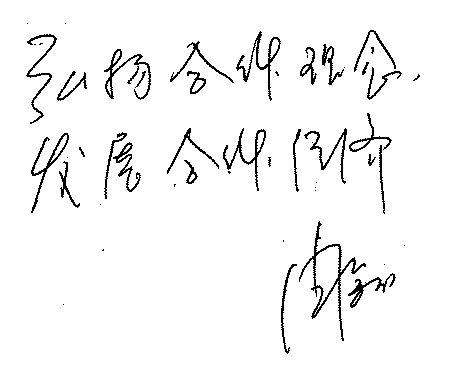 弘扬合作理念,
发展合作经济